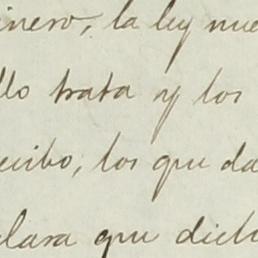 inero, la ley nue
llo trata y los
ecibo, los que da
clara que dich